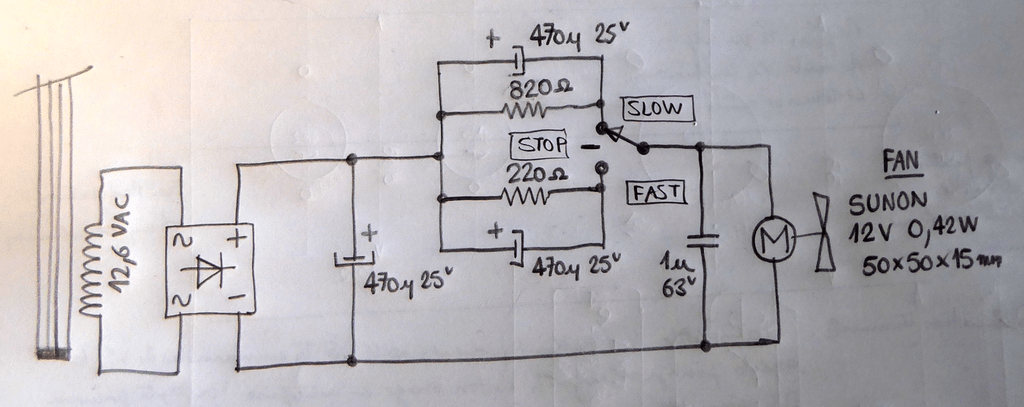 12,6 VAC
~
~
+
-
+
470µ 25V
+
470µ 25V
820Ω
SLOW
STOP
220Ω
FAST
+
470µ 25V
1µ
63V
M
FAN
SUNON
12V 0,42W
50×50×15mm